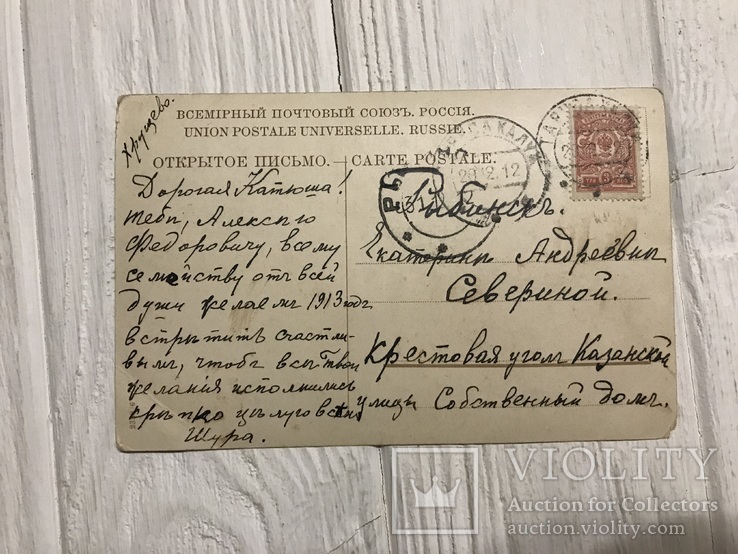 Хрущево.
ВСЕМІРНЫЙ ПОЧТОВЫЙ СОЮЗЪ. РОССІЯ.
UNION POSTALE UNIVERSELLE. RUSSIE.
ОТКРЫТОЕ ПИСЬМО. — CARTE POSTALE.
Дорогая Катюша!
тебѣ, Алексѣю
Федоровичу, всему
семейству отъ всей
души желаемъ 1913 годъ
встрѣтить счастли-
вымъ, чтобъ всѣ Твои
желанія исполнились
крѣпко цѣлую
Шура.
29 12 12
Рыбинскъ.
Екатеринѣ Андреевнѣ
Севериной.
Крестовая уголъ Казанской
улицы Собственный домъ.
VIOLITY
Auction for Collectors
auction.violity.com